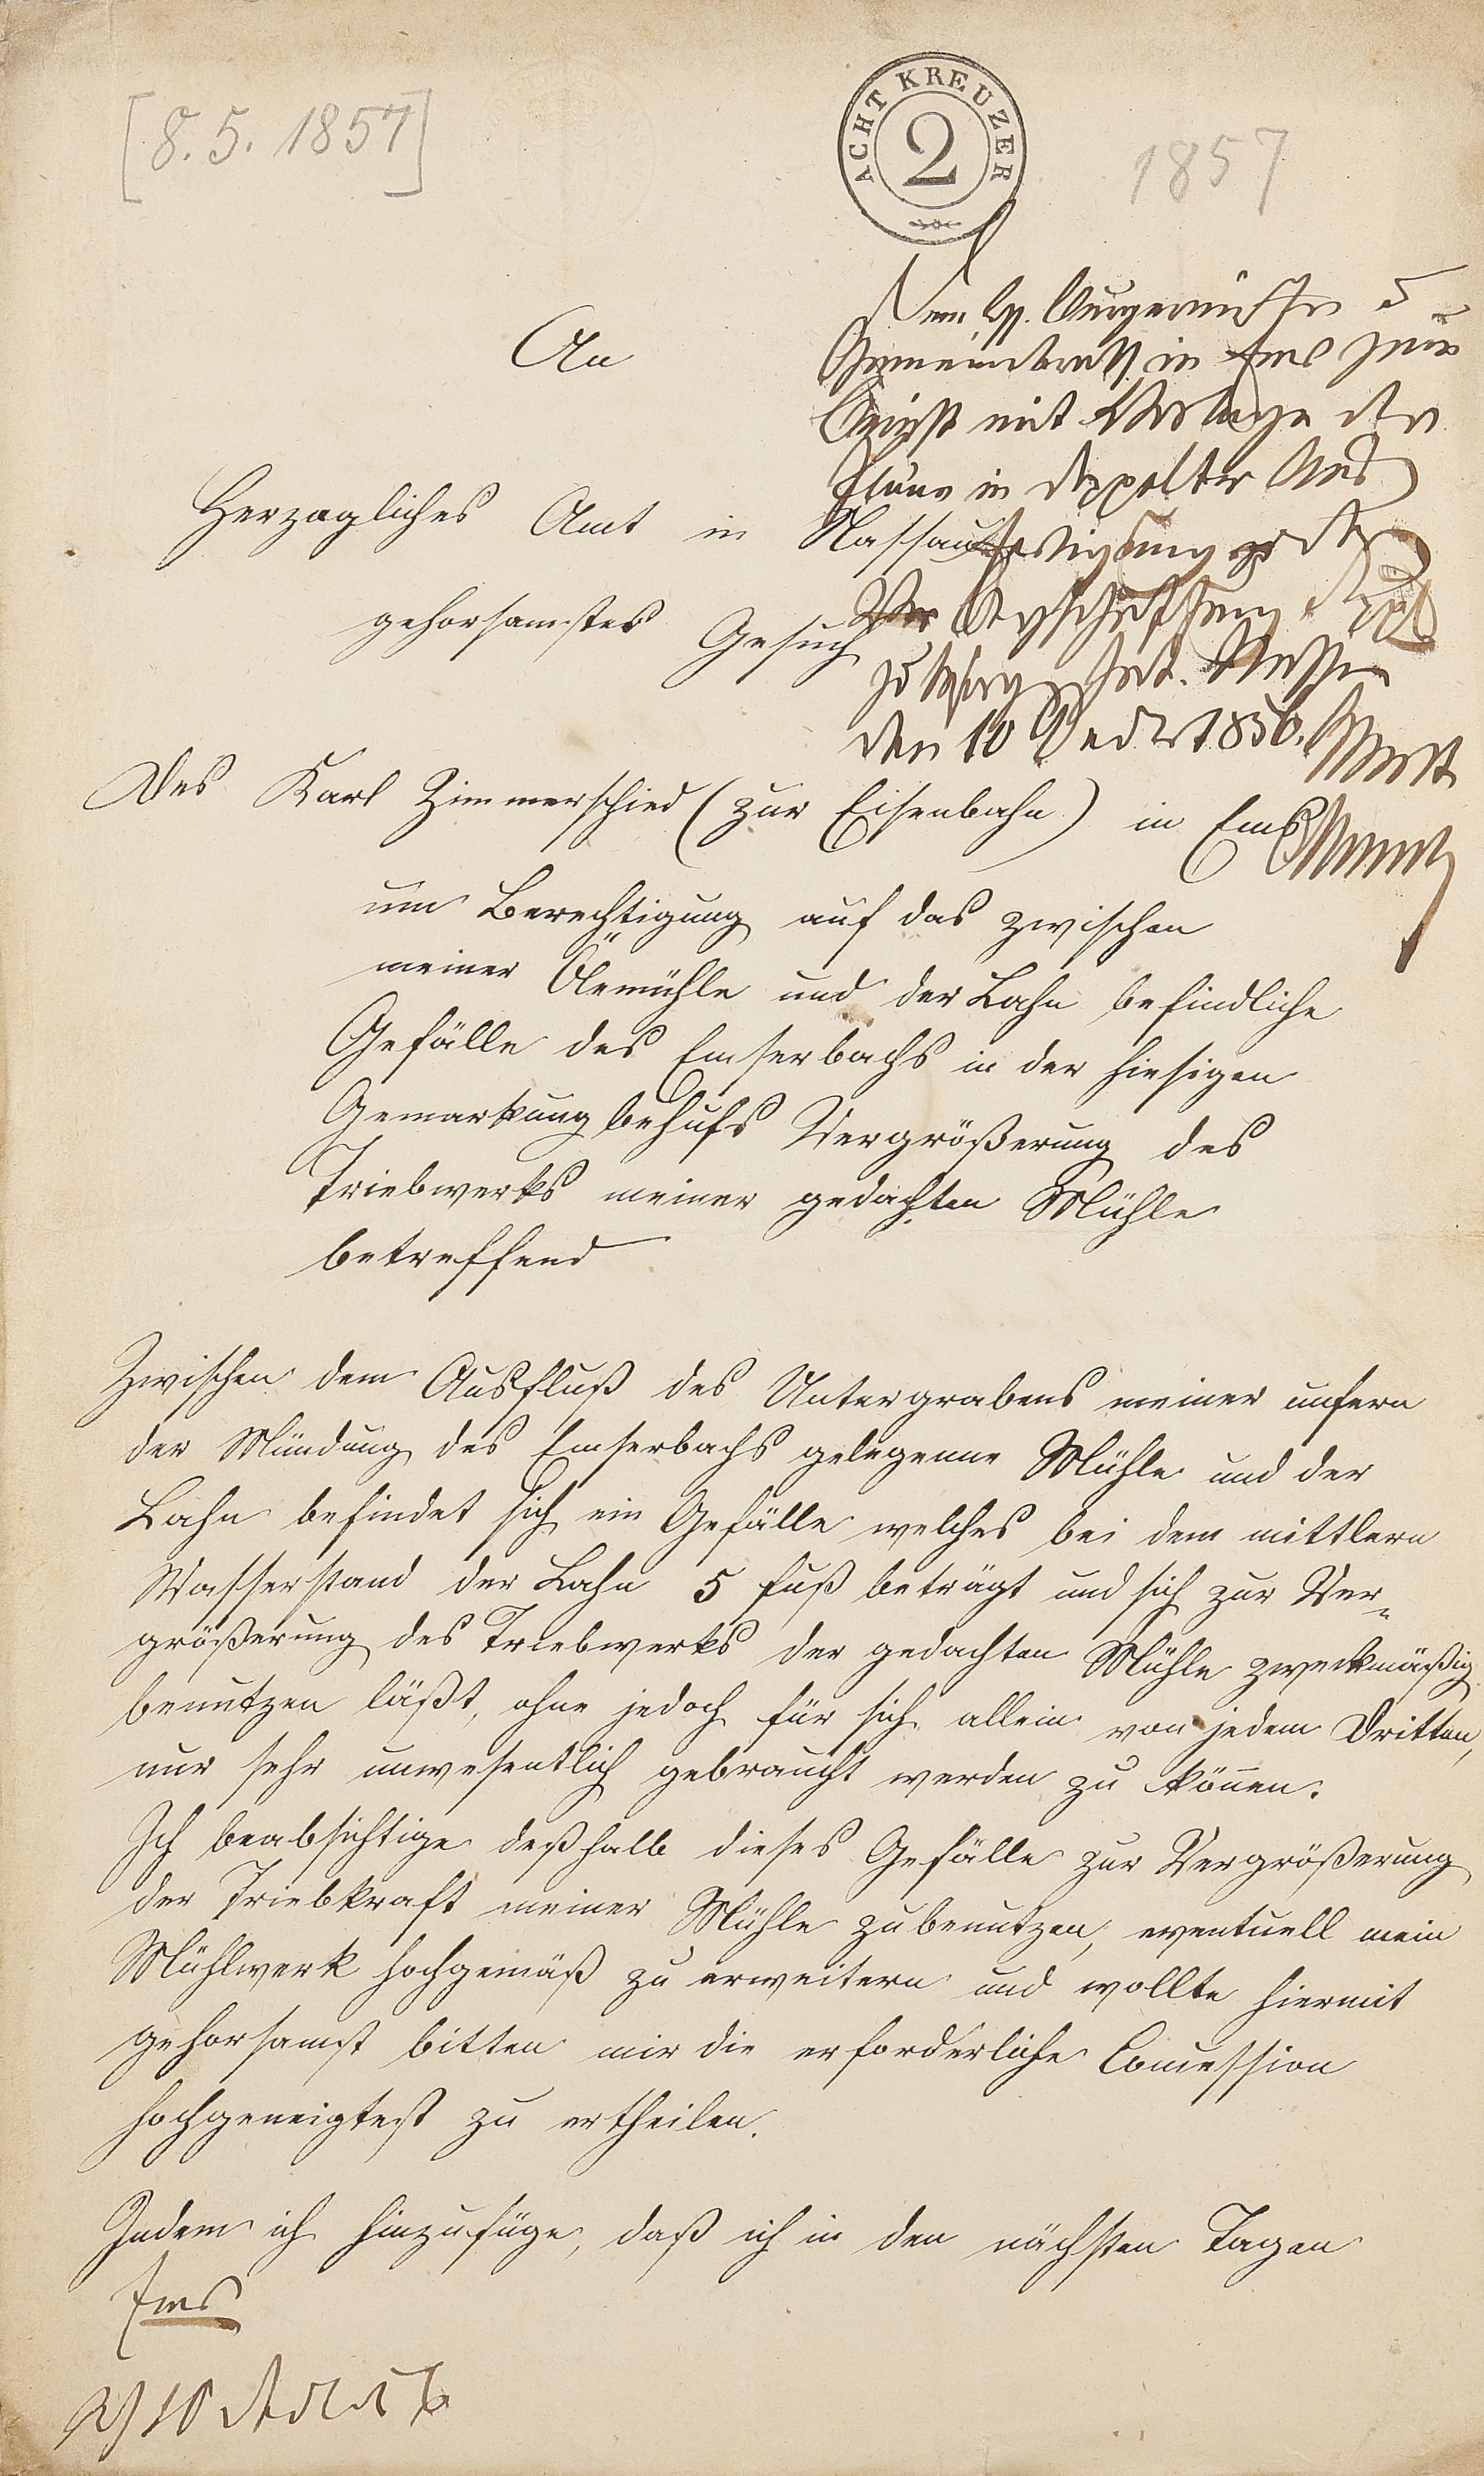 [8.5.1857]
ACHT KREUZER
2
1857
Gemeinderath in Ems zum
Bericht mit Vorlage der
Pläne in doppelter Aus
fertigung
den 10 1856.
An
Herzogliches Amt in Nassau
gehorsamstes Gesuch
Des Karl Zimmerschied (zur Eisenbahn) in Ems
um Berechtigung auf das zwischen
meiner Ölemühle und der Lahn befindliche
Gefälle des Emserbachs in der hiesigen
Gemarkung behufs Vergrößerung des
Triebwerks meiner gedachten Mühle
betreffend
Zwischen dem Ausfluß des Untergrabens meiner unfern
der Mündung des Emserbachs gelegenne Mühle und der
Lahn befindet sich ein Gefälle welches bei dem mittlern
Wasserstand der Lahn 5 Fuß beträgt und sich zur Ver=
größerung des Triebwerks der gedachten Mühle zweckmäßig
benutzen läßt, ohne jedoch für sich allein von jedem Dritten,
nur sehr unwesentlich gebraucht werden zu können.
Ich beabsichtige deßhalb dieses Gefälle zur Vergrößerung
der Triebkraft meiner Mühle zu benutzen, eventuell mein
Mühlwerk hochgemäß zu erweitern und wollte hiermit
gehorsamst bitten mir die erforderliche Concession
hochgeneigtest zu ertheilen.
Indem ich hinzufüge, daß ich in den nächsten Tagen
Ems